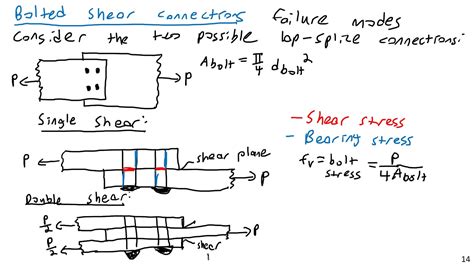 Bolted shear connections failure modes
Consider the two possible lap-splice connections:
P P
A bolt = π/4 d bolt ²
Single shear:
P shear plane P
- Shear stress
- Bearing stress
fv = bolt stress = P / 4 A bolt
Double shear:
P/2
P
P/2
shear
14